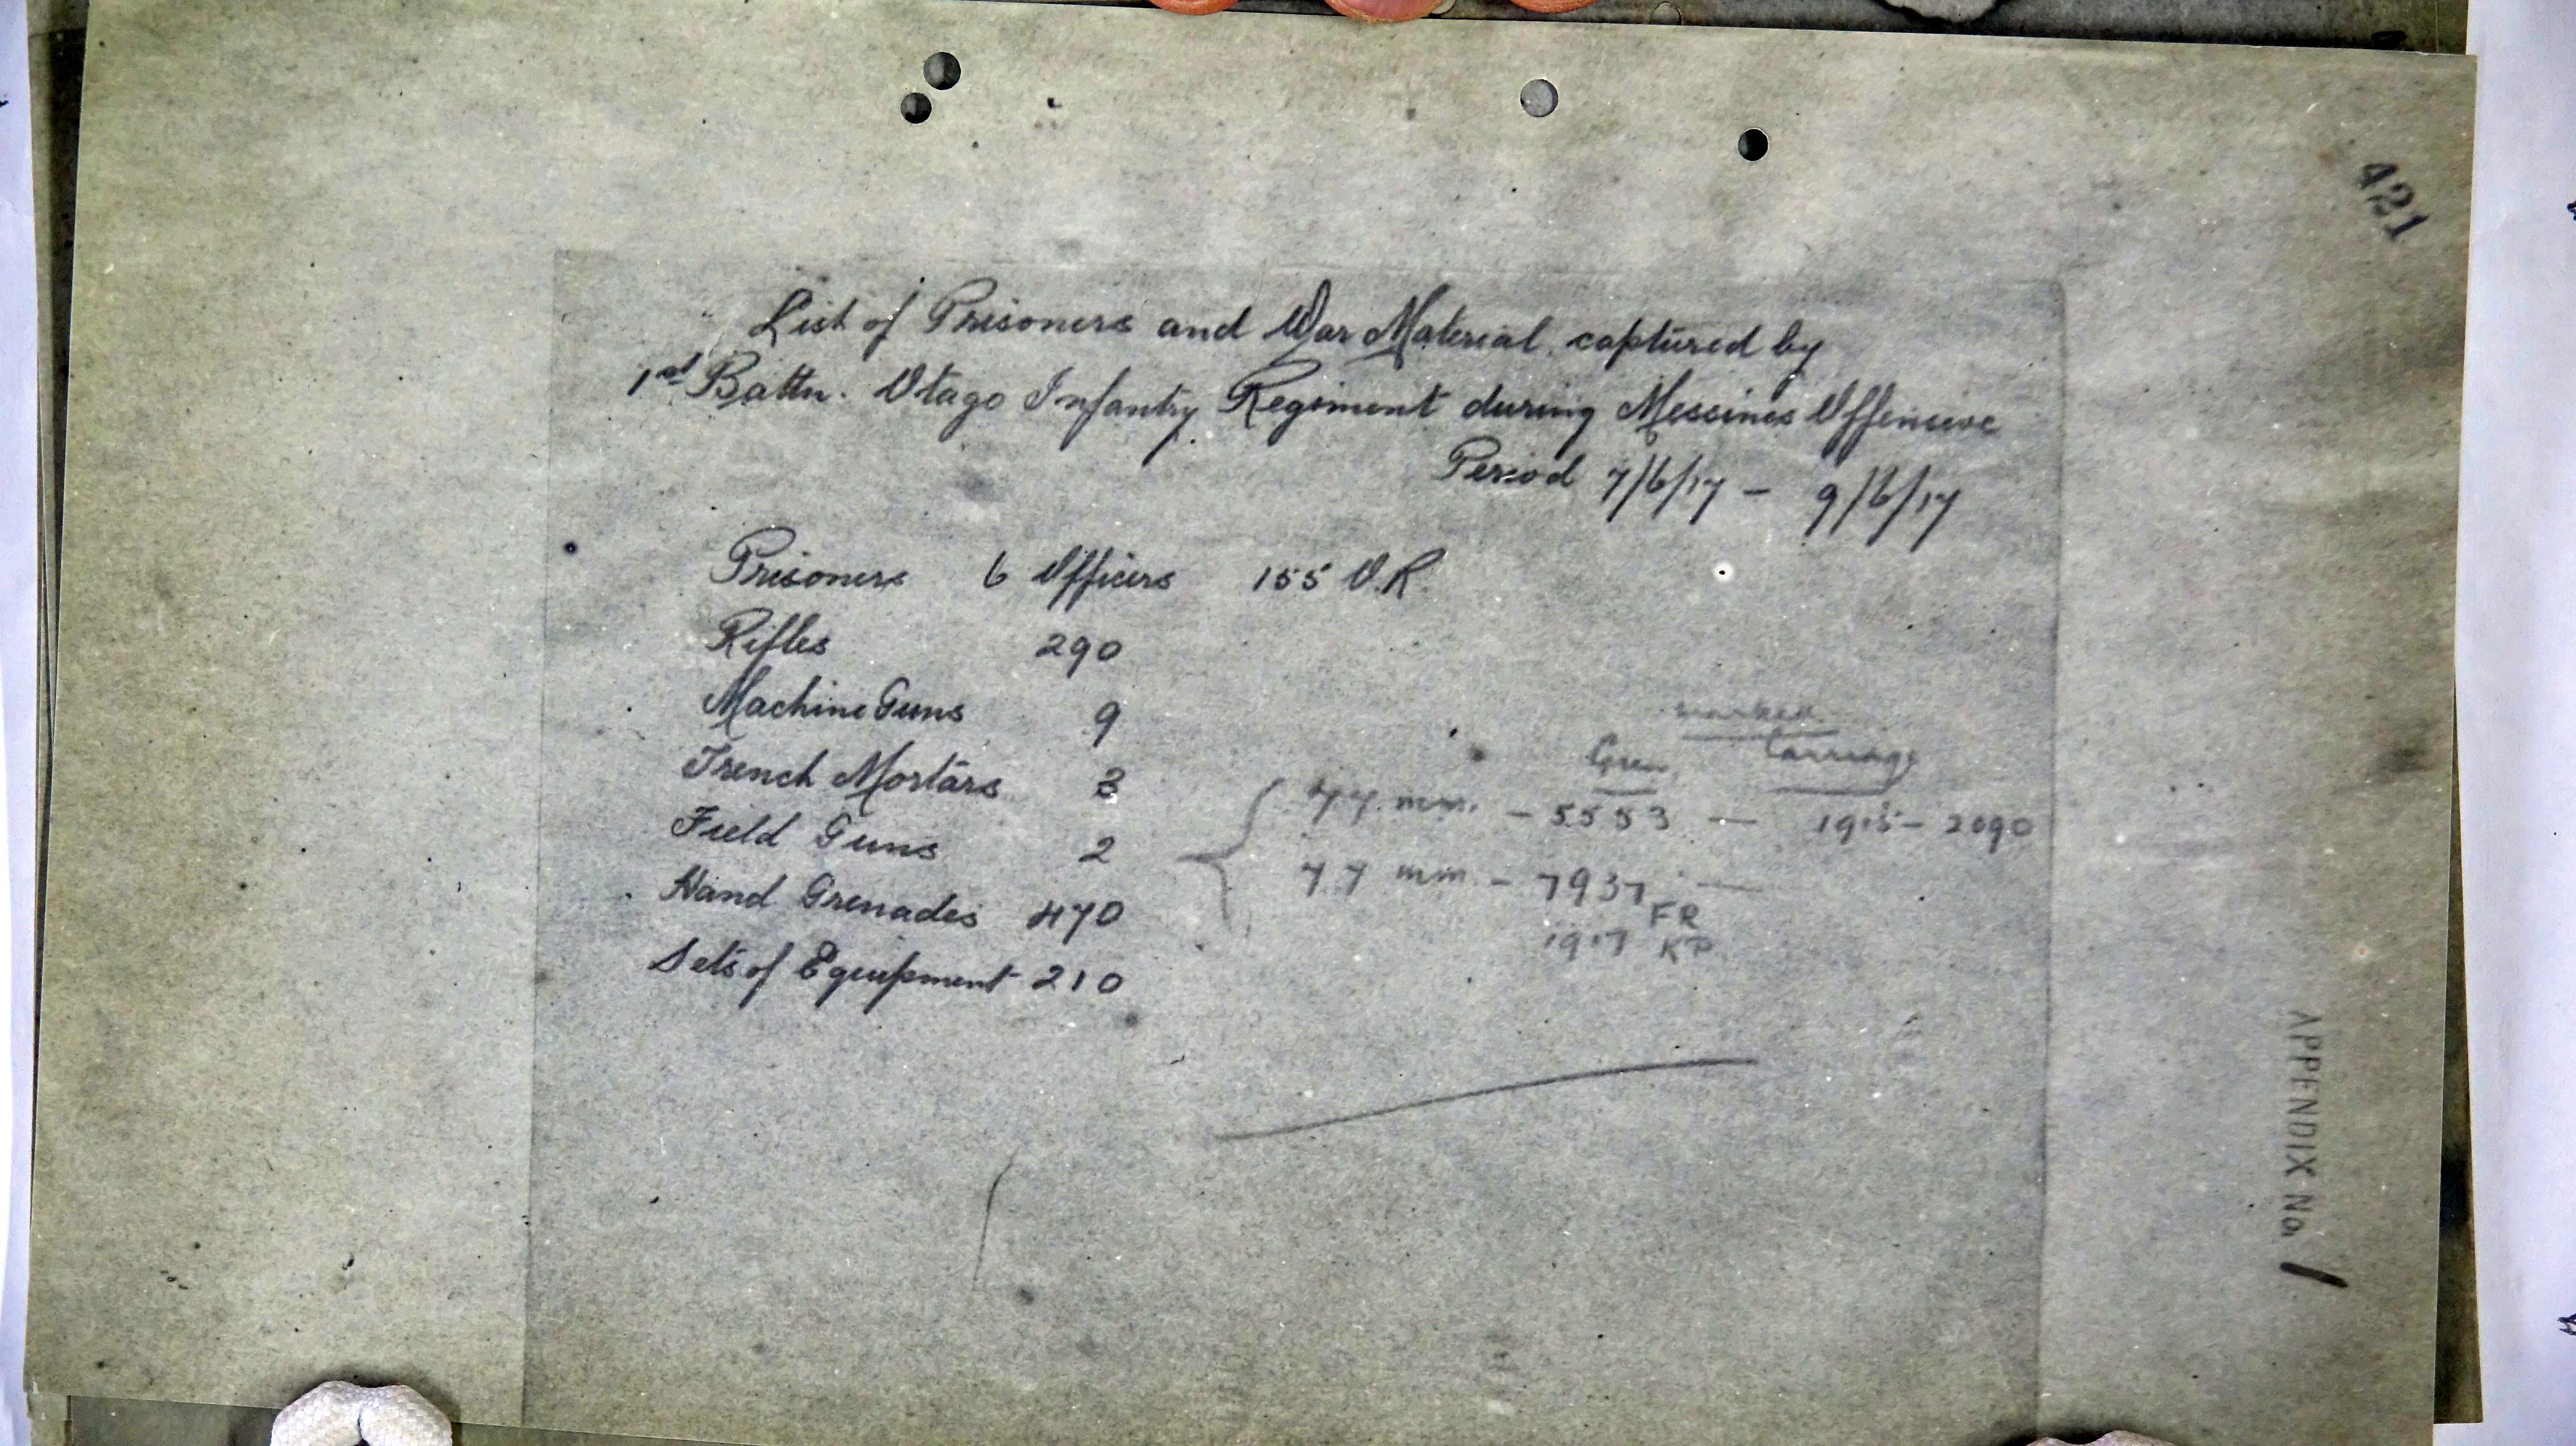 421
List of Prisoners and War Material captured by
1st Battn. Otago Infantry Regiment during Messines Offensive
Period 7/6/17 - 9/6/17
Prisoners 6 Officers 155 O.R.
Rifles 290
Machine Guns 9
Trench Mortars 3
Field Guns 2
Hand Grenades 470
Sets of Equipment 210
marked
Gun Carriage
77 mm. - 5553 - 1915 - 2090
77 mm - 7937 - FR
1917 KP
APPENDIX No. 1